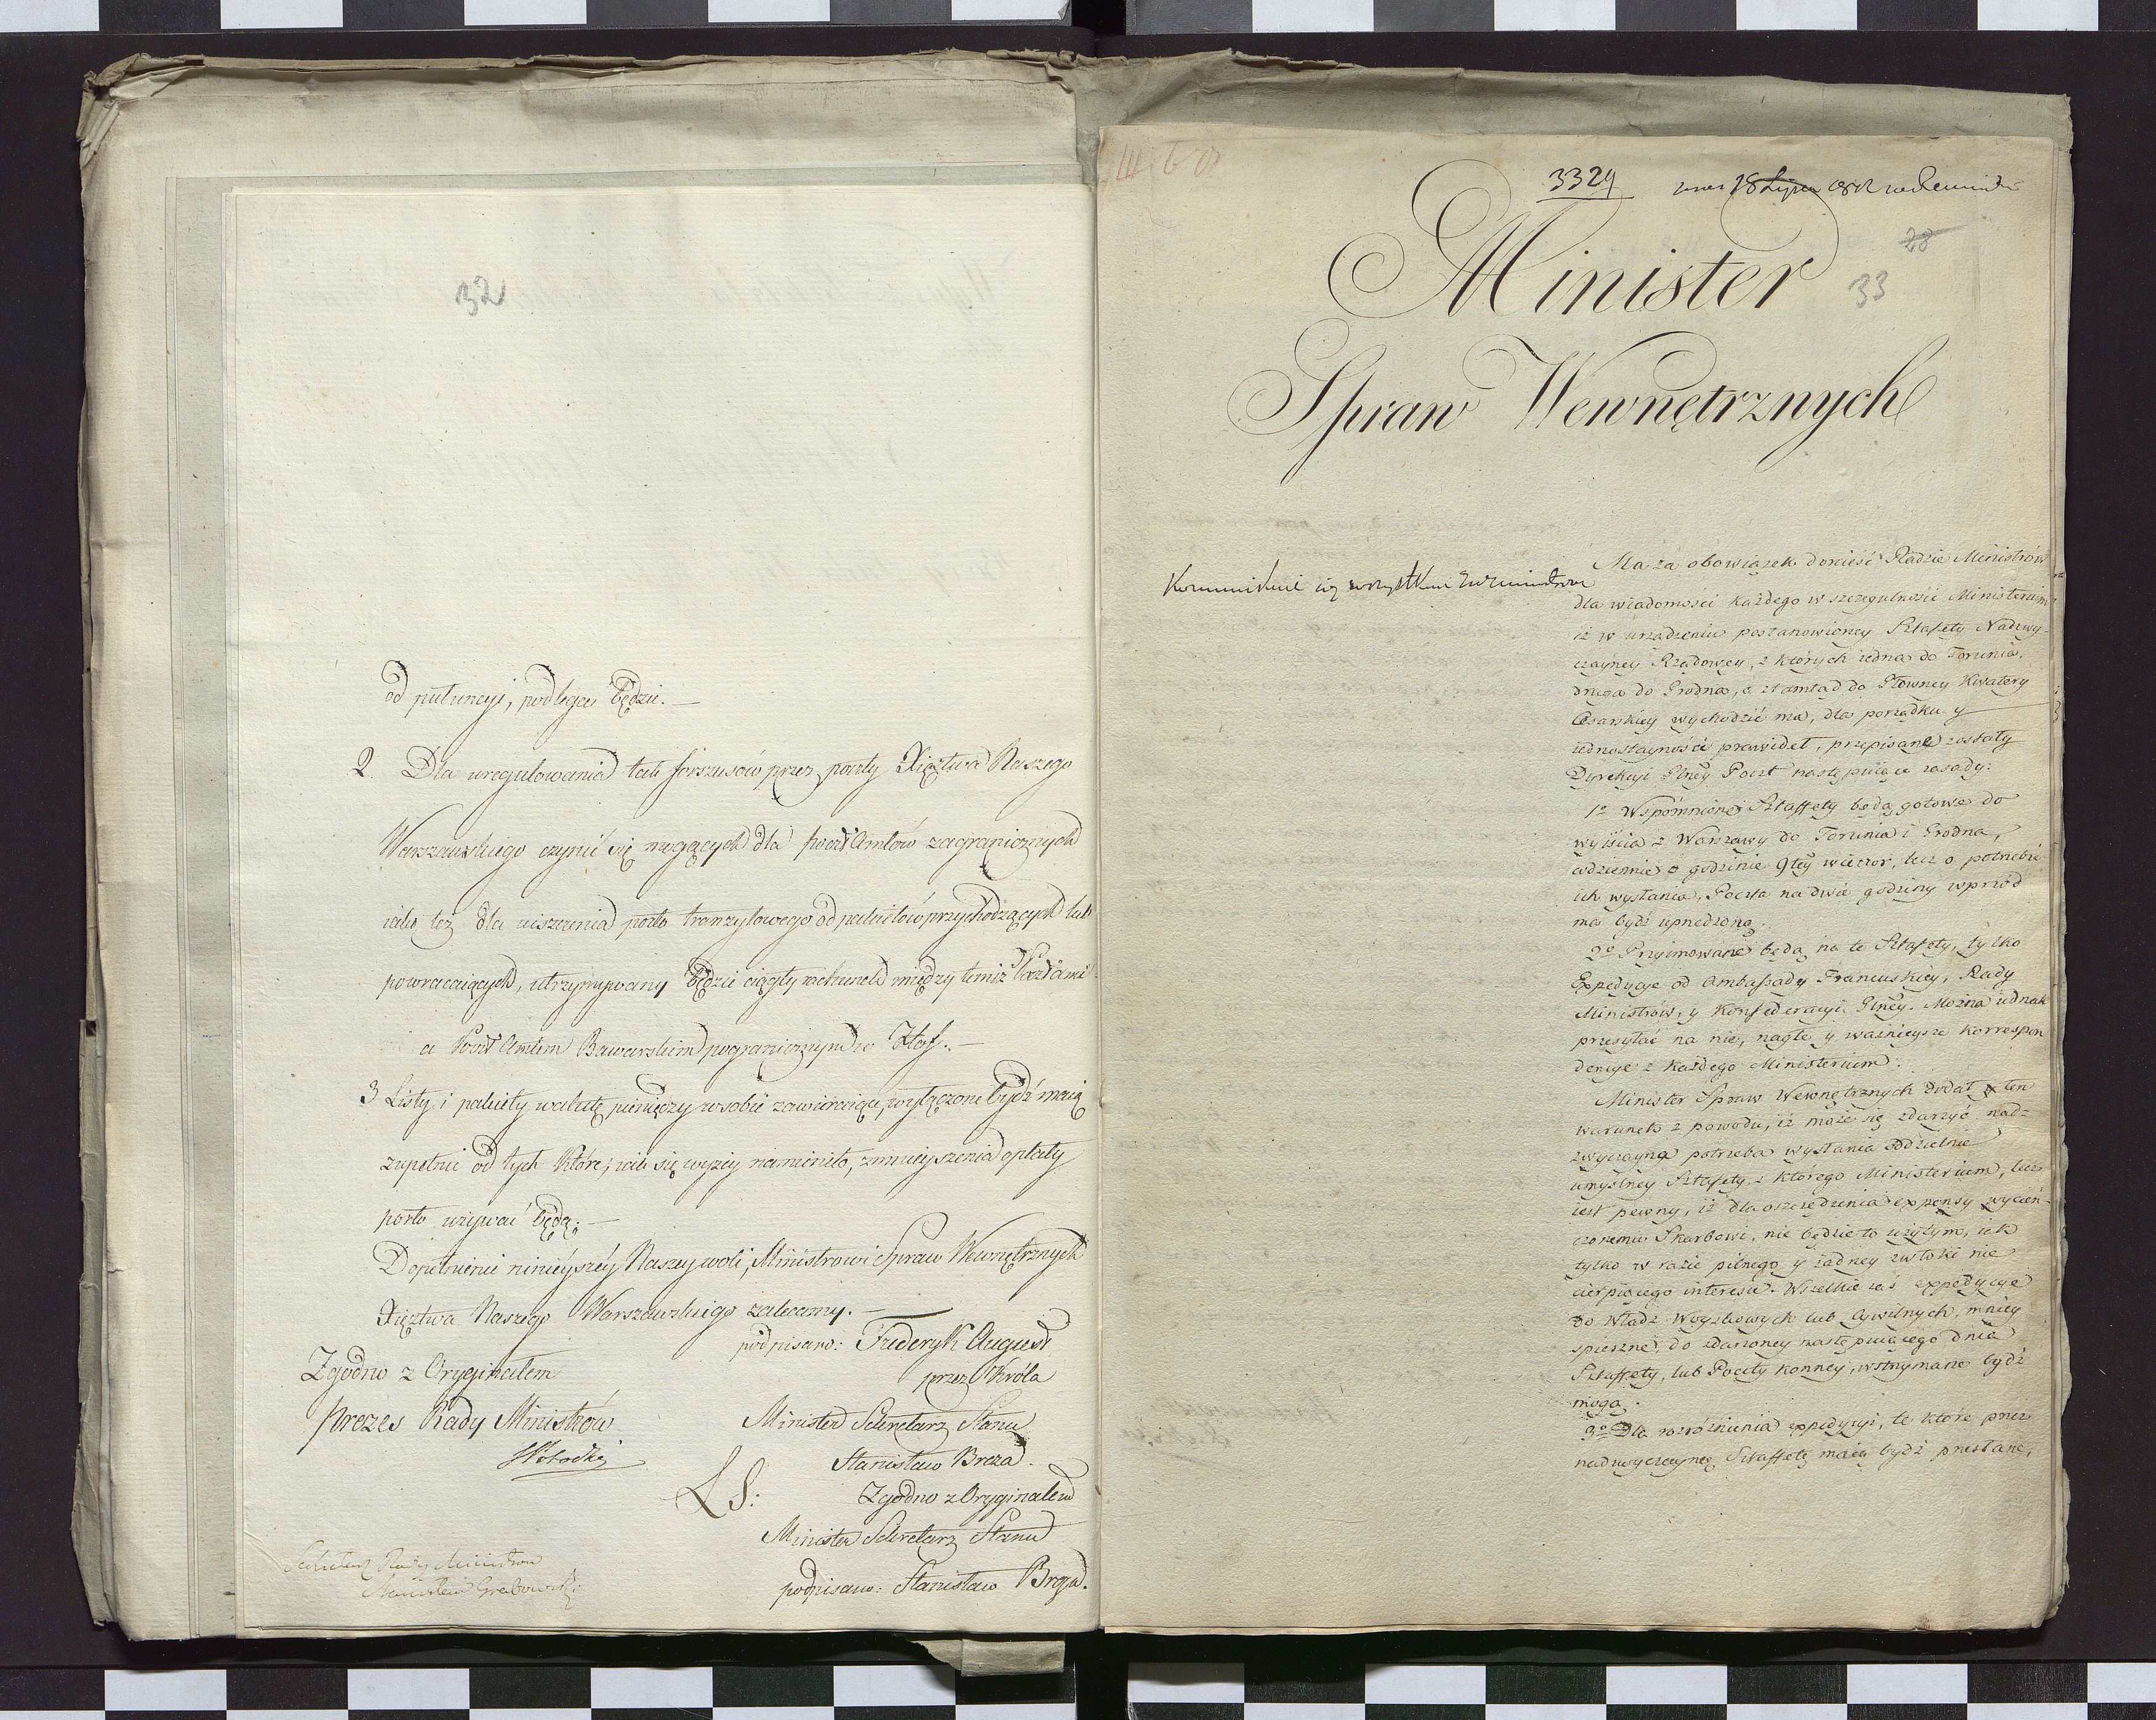 32
od pretensyi, podlegać będzie.
2. Dla uregulowania tak forszusów przez poczty Xięztwa Naszego
Warszawskiego czynić się mogących dla Poczt Amtów zagranicznych
iako też dla uiszczenia porto tranzytowego od pakietów przychodzących lub
powracaiących, utrzymywany będzie ciągły rachunek między temiż Pocztami
a Poczt Amtem Bawarskim pogranicznym w Hof.
3 Listy i pakiety walutę pieniędzy w sobie zawieraiące, wyłączone bydź maią
zupełnie od tych które, iak się wyżey namieniło, zmnieyszenia opłaty
porto używać będą.
Dopełnienie ninieyszéy Naszey woli, Ministrowi Spraw Wewnętrznych
Xięztwa Naszego Warszawskiego zalecamy.
podpisano: Frederyk August
Zgodno z Oryginałem
przez Króla
Prezes Rady Ministrów
Minister Sekretarz Stanu
Stanisław Breza.
L S:
Zgodno z Oryginałem
Minister Sekretarz Stanu
Sekretarz Rady Ministrów
Stanisław Grabowski
podpisano: Stanisław Breza.
3324
28
33
Minister
Spraw Wewnętrznych
Ma za obowiązek donieść Radzie Ministrów
Kommunikuie się wszystkim
dla wiadomości każdego w szczegulności Ministerium
iż w urządzeniu postanowioney Sztafety Nadzwy-
czayney Rządowey, z których iedna do Torunia,
druga do Grodna, a ztamtąd do Głowney Kwatery
Cesarskiey wychodzić ma, dla porządku y
iednostayności prawideł, przepisane zostały
Dyrekcyi Glney Poczt następuiące zasady:
1o Wspómnione Sztaffety będą gotowe do
wyiścia z Warszawy do Torunia i Grodna,
codziennie o godzinie 9tey wieczor, lecz o potrzebie
ich wysłania, Poczta na dwie godziny wprzód
ma bydź uprzedzoną.
2o Przyimowane będą na te Sztafety, tylko
Expedycye od Ambassady Francuskiey, Rady
Ministrów, y Konfederacyi Glney. Można iednak
przesyłać na nie, nagłe y ważnieysze korrespon
dencye z każdego Ministerium.
Minister Spraw Wewnętrznych dodał ten
warunek z powodu, iż może się zdarzyć nad-
zwyczayna potrzeba wysłania oddzielnie
umyślney Sztafety z którego Ministerium, lecz
iest pewny, iż dla oszczędzenia expensy wycień-
czonemu Skarbowi, nie będzie to użytym, iak
tylko w razie pilnego y żadney zwłoki nie
cierpiącego interesu. Wszelkie zaś expedycye
do Władz Woyskowych lub Cywilnych, mniey
spieszne, do zdarzoney następuiącego dnia
Sztaffety, lub Poczty konney, wstrzymane bydź
mogą.
3o Dla rozróżnienia expedycyi, te które przez
nadzwyczayną Sztaffetę maią bydź przesłane,